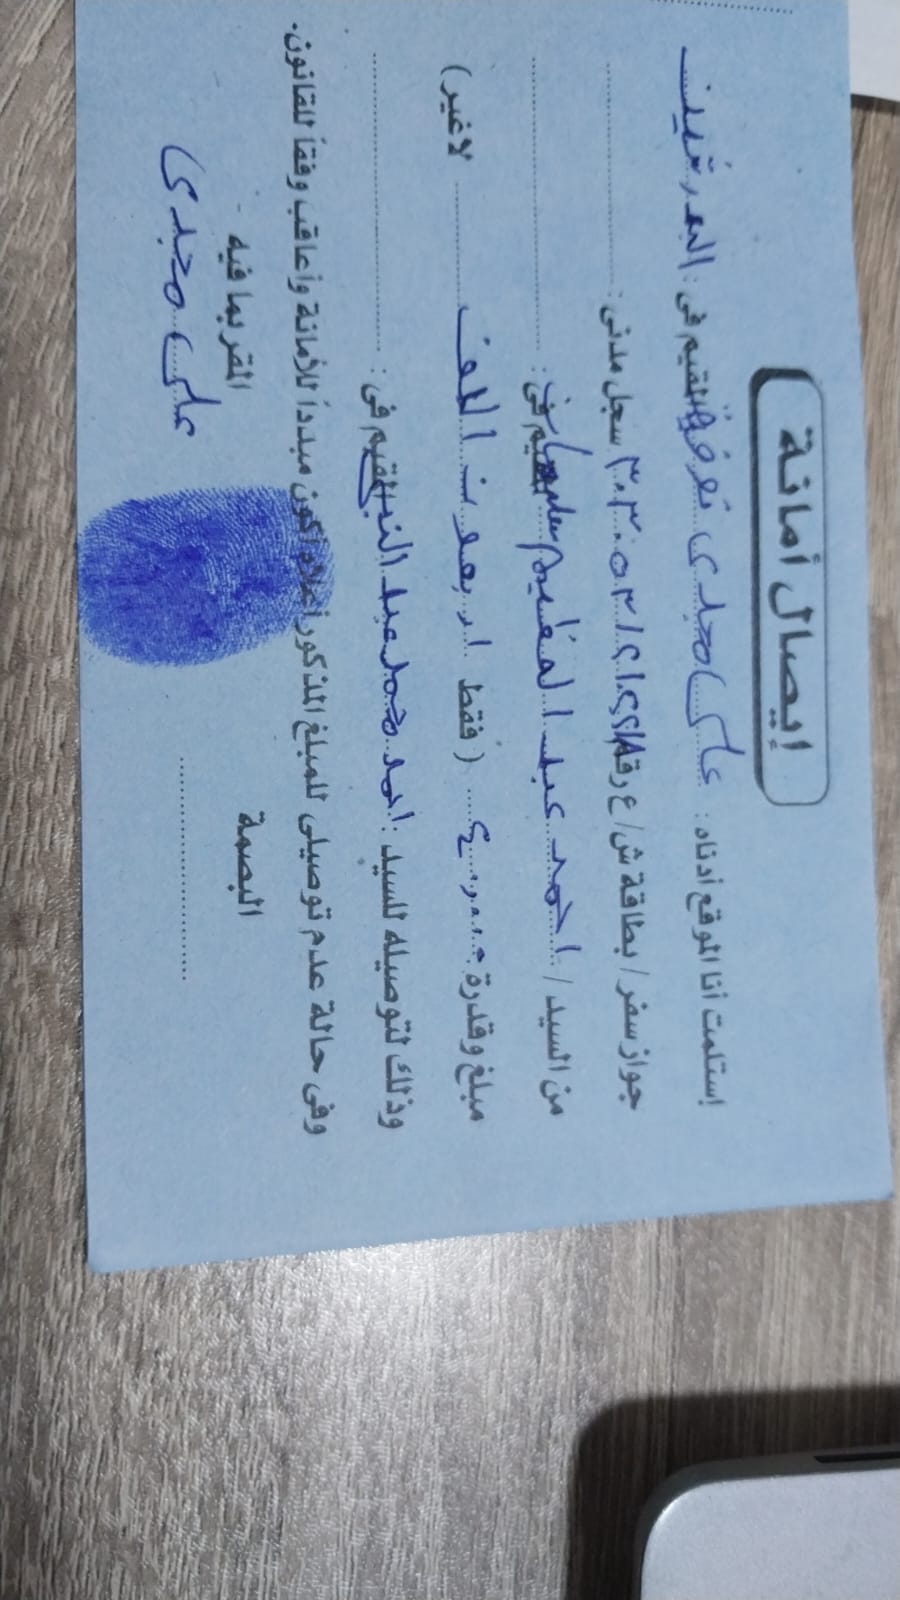 إيصال أمانة
إستلمت أنا الموقع أدناه : على مجدى المقيم فى :
جواز سفر / بطاقة ش / ع رقم سجل مدنى :
من السيد / احمد عبد العظيم سليمان المقيم فى :
مبلغ وقدرة ٤٠٠٠٠ ( فقط اربعون الف لاغير)
وذلك لتوصيله للسيد : احمد محمد عبد النبى المقيم فى :
وفى حالة عدم توصيلى للمبلغ المذكور أعلاه أكون مبدداً للأمانة وأعاقب وفقاً للقانون.
البصمة المقر بما فيه
على مجدى